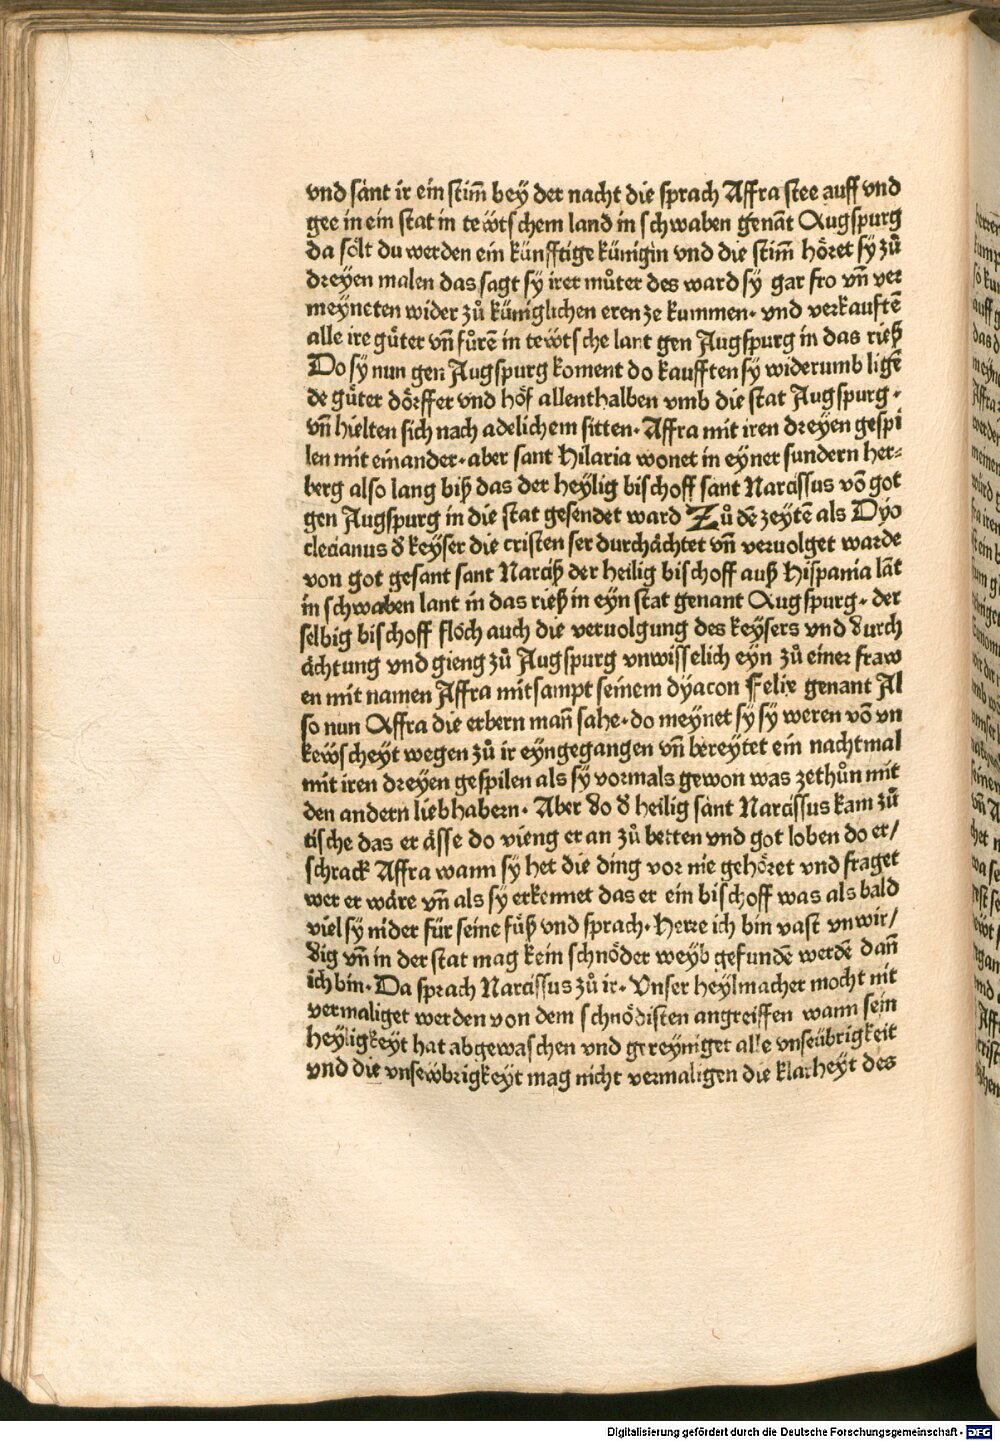 vnd sant ir ein stim̄ bey der nacht die sprach Affra stee auff vnd
gee in ein stat in tewtschem land in schwaben genāt Augspurg
da solt du werden ein künfftige künigin vnd die stim̄ höret sy zů
dreyen malen das sagt sy irer můter des ward sy gar fro vn̄ ver
meyneten wider zů küniglichen eren ze kummen· vnd verkauftē
alle ire güter vn̄ fůrē in tewtsche lant gen Augspurg in das rieß
Do sy nun gen Augspurg koment do kaufften sy widerumb ligē
de güter dörffer vnd höf allenthalben vmb die stat Augspurg·
vn̄ hielten sich nach adelichem sitten· Affra mit iren dreyen gespi
len mit einander· aber sant Hilaria wonet in eyner sundern her-
berg also lang biß das der heylig bischoff sant Narcissus vō got
gen Augspurg in die stat gesendet ward Zů dē zeytē als Dyo
clecianus d̕ keyser die cristen ser durchächtet vn̄ veruolget warde
von got gesant sant Narciß der heilig bischoff auß Hispania lāt
in schwaben lant in das rieß in eyn stat genant Augspurg· der
selbig bischoff flöch auch die veruolgung des keysers vnd durch
ächtung vnd gieng zů Augspurg vnwisselich eyn zů einer fraw
en mit namen Affra mitsampt seinem dyacon Felix genant Al
so nun Affra die erbern man̄ sahe· do meynet sy sy weren vō vn
kewscheyt wegen zů ir eyngegangen vn̄ bereytet ein nachtmal
mit iren dreyen gespilen als sy vormals gewon was zethůn mit
den andern liebhabern· Aber do d̕ heilig sant Narcissus kam zů
tische das er ässe do vieng er an zů betten vnd got loben do er/
schrack Affra wann sy het die ding vor nie gehöret vnd fraget
wer er wäre vn̄ als sy erkennet das er ein bischoff was als bald
viel sy nider für seine füß vnd sprach· Herre ich bin vast vnwir/
dig vn̄ in der stat mag kein schnöder weyb gefundē werdē dan̄
ich bin· Da sprach Narcissus zů ir· Vnser heylmacher mocht nit
vermaliget werden von dem schnödisten angreiffen wann sein
heyligkeyt hat abgewaschen vnd gereyniget alle vnseübrigkeit
vnd die vnsewbrigkeyt mag nicht vermaligen die klarheyt des
Digitalisierung gefördert durch die Deutsche Forschungsgemeinschaft - DFG